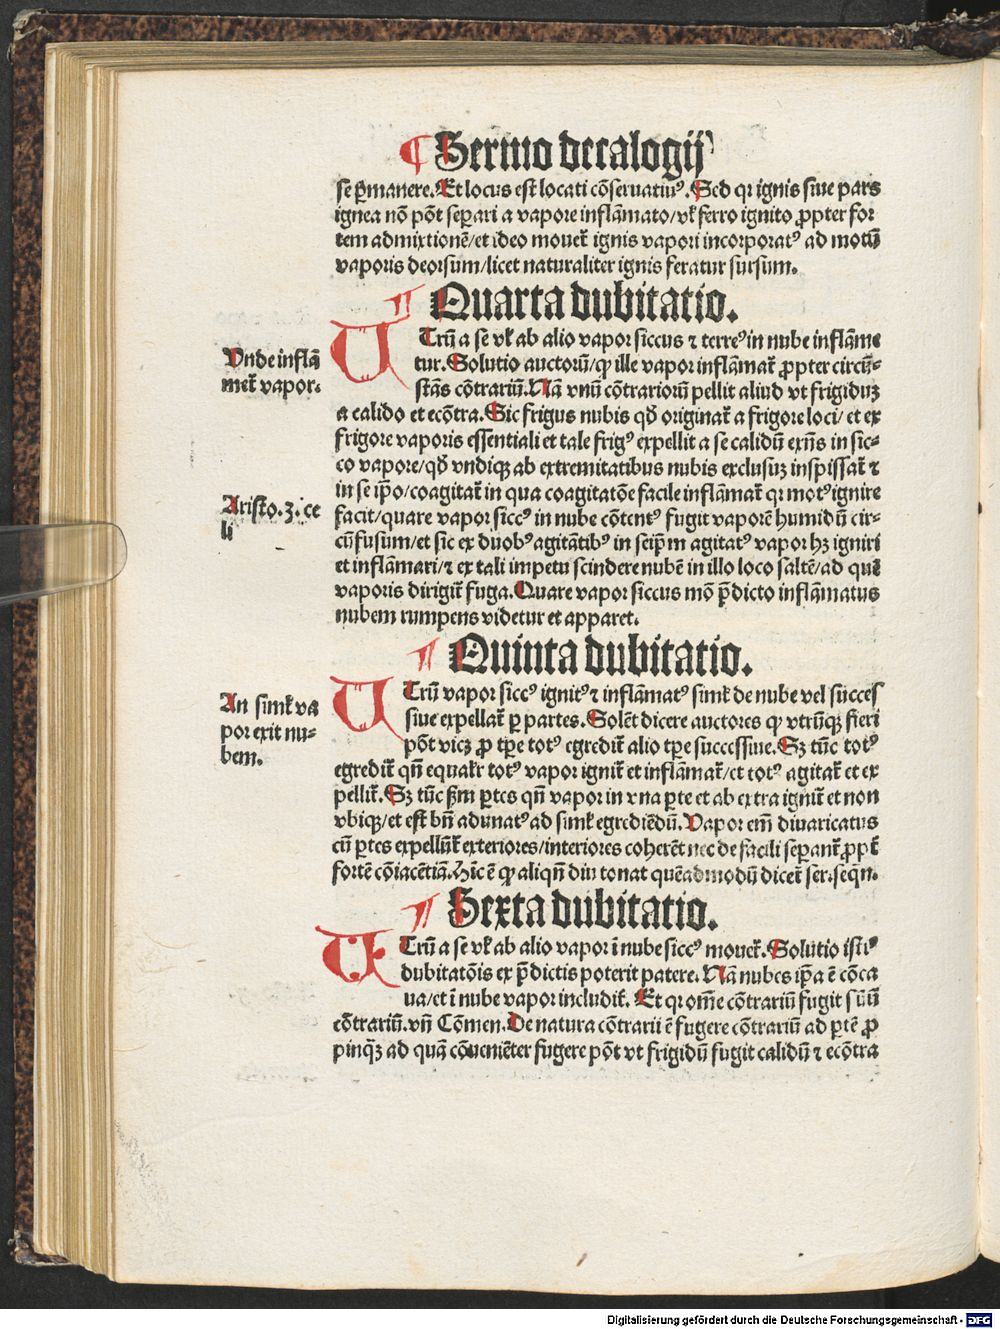 ¶ Sermo decalogij
se ꝑmanere. Et locus est locati cōseruatiuꝰ. Sed qꝛ ignis siue pars
ignea nō pōt seꝑari a vapore inflāmato/vł ferro ignito ꝓpter for
tem admixtionē/et ideo mouet᷑ ignis vapori incorporatꝰ ad motū
vaporis deorsum/licet naturaliter ignis feratur sursum.
¶ Quarta dubitatio.
UTrū a se vł ab alio vapor siccus ⁊ terreꝰ in nube inflāme
tur. Solutio auctorū/ꝙ ille vapor inflāmat᷑ ꝓpter circū-
stās cōtrariū. Nā vnū cōtrariorū pellit aliud vt frigiduꝫ
a calido et ecōtra. Sic frigus nubis qđ originat᷑ a frigore loci/ et ex
frigore vaporis essentiali et tale frigꝰ expellit a se calidū exn̄s in sic-
co vapore/qđ vndiqꝫ ab extremitatibus nubis exclusuꝫ inspissat᷑ ⁊
in se ip̄o/coagitat᷑ in qua coagitatōe facile inflāmat᷑ qꝛ motꝰ ignire
facit/quare vapor siccꝰ in nube cōtentꝰ fugit vaporē humidū cir-
cūfusum/et sic ex duobꝰ agitātibꝰ in seip̄m agitatꝰ vapor hꝫ igniri
et inflāmari/⁊ ex tali impetu scindere nubē in illo loco saltē/ad quē
vaporis dirigit᷑ fuga. Quare vapor siccus mō p̄dicto inflāmatus
nubem rumpens videtur et apparet.
Vnde inflā
met᷑ vapor.
Aristo. 3. ce
li
¶ Quinta dubitatio.
UTrū vapor siccꝰ ignitꝰ ⁊ inflāmatꝰ simł de nube vel succes
siue expellat᷑ ꝑ partes. Solēt dicere auctores ꝙ vtrūqꝫ fieri
pōt viꝫ ꝓ tꝑe totꝰ egredit᷑ alio tꝑe successiue. Sꝫ tūc totꝰ
egredit᷑ qn̄ equalr totꝰ vapor ignit᷑ et inflāmat᷑/et totꝰ agitat᷑ et ex
pellit᷑. Sꝫ tūc ẜm ꝑtes qn̄ vapor in vna ꝑte et ab extra ignit᷑ et non
vbiqꝫ/et est bn̄ adunatꝰ ad simł egrediēdū. Vapor em̄ diuaricatus
cū ꝑtes expellūt᷑ exteriores/interiores coherēt nec de facili seꝑant᷑ ꝓpt̄
fortē cōiacētiā. Hīc ē ꝙ aliqn̄ diu tonat quēadmodū dicet᷑ ser. seqn̄.
An simł va
por exit nu-
bem.
¶ Sexta dubitatio.
UTrū a se vł ab alio vapor ī nube siccꝰ mouet᷑. Solutio istiꝰ
dubitatōis ex p̄dictis poterit patere. Nā nubes ip̄a ē cōca
ua/et ī nube vapor includit᷑. Et qꝛ om̄e cōtrariū fugit suū
cōtrariū. vn̄ Cōmen. De natura cōtrarii ē fugere cōtrariū ad ꝑtē ꝓ
pinqꝫ ad quā cōueniēter fugere pōt vt frigidū fugit calidū ⁊ ecōtra
Digitalisierung gefördert durch die Deutsche Forschungsgemeinschaft - DFG